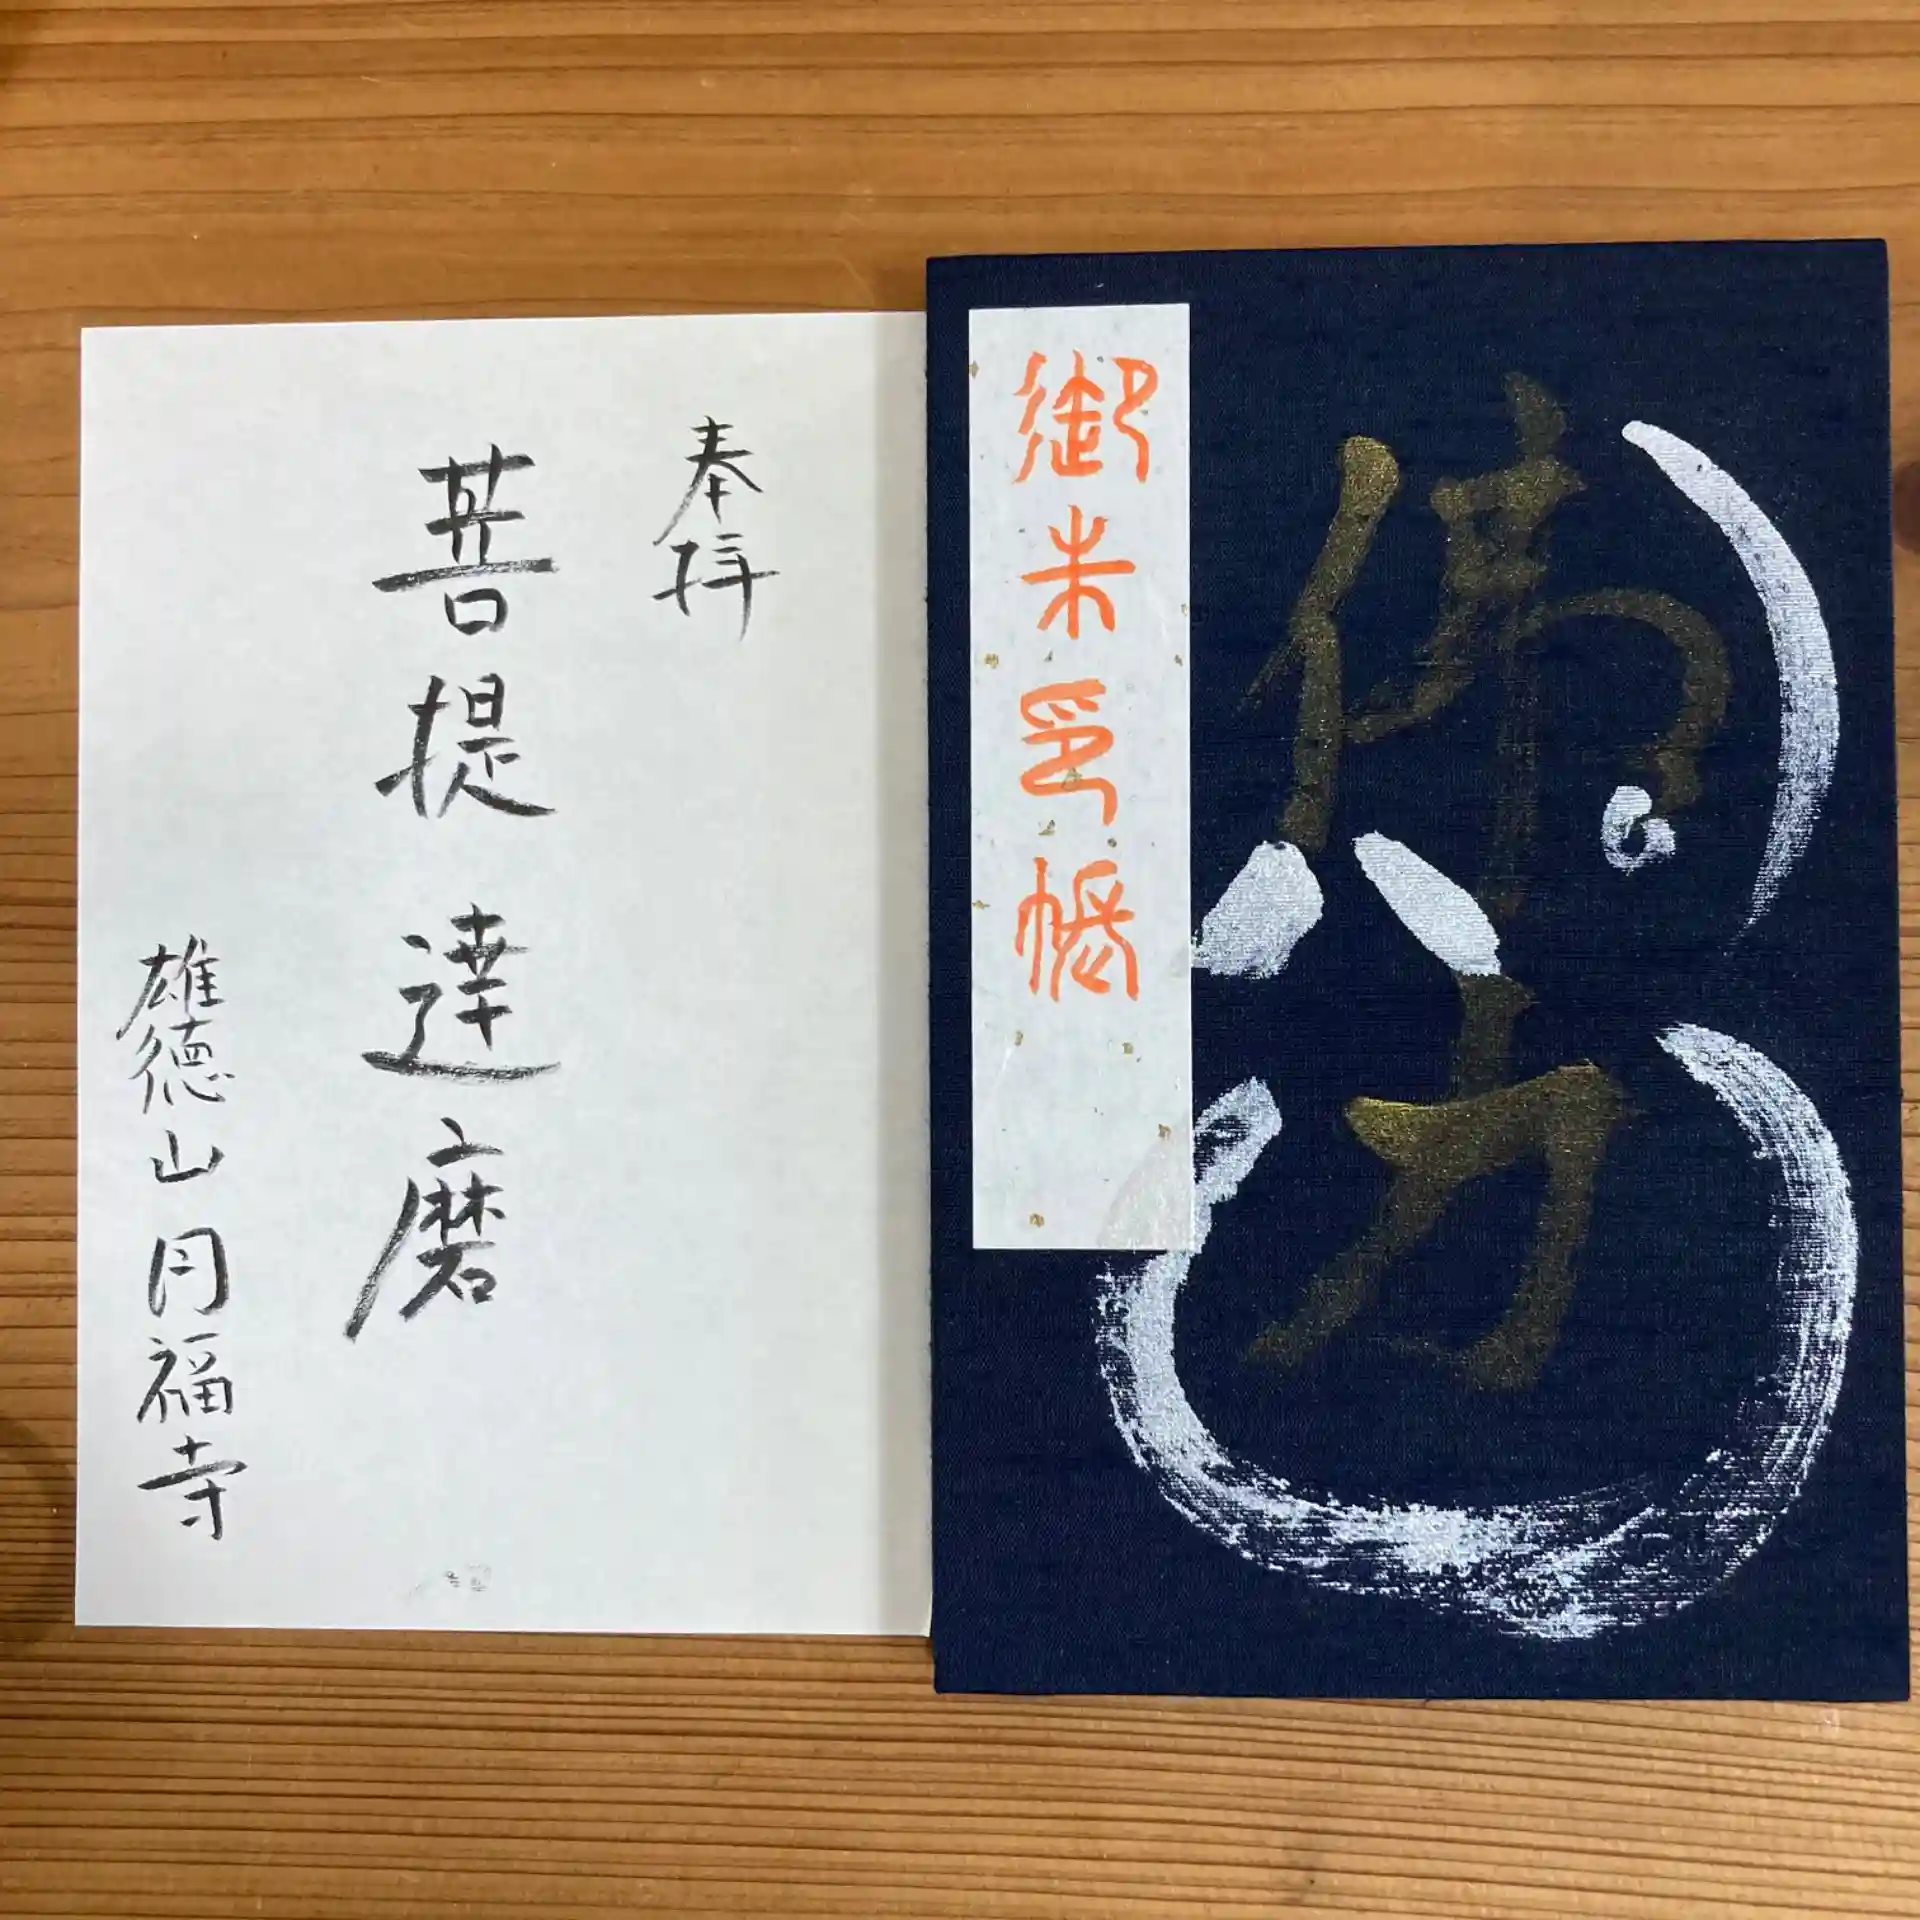 佛力
御朱印帳
奉拝
菩提達磨
雄徳山円福寺